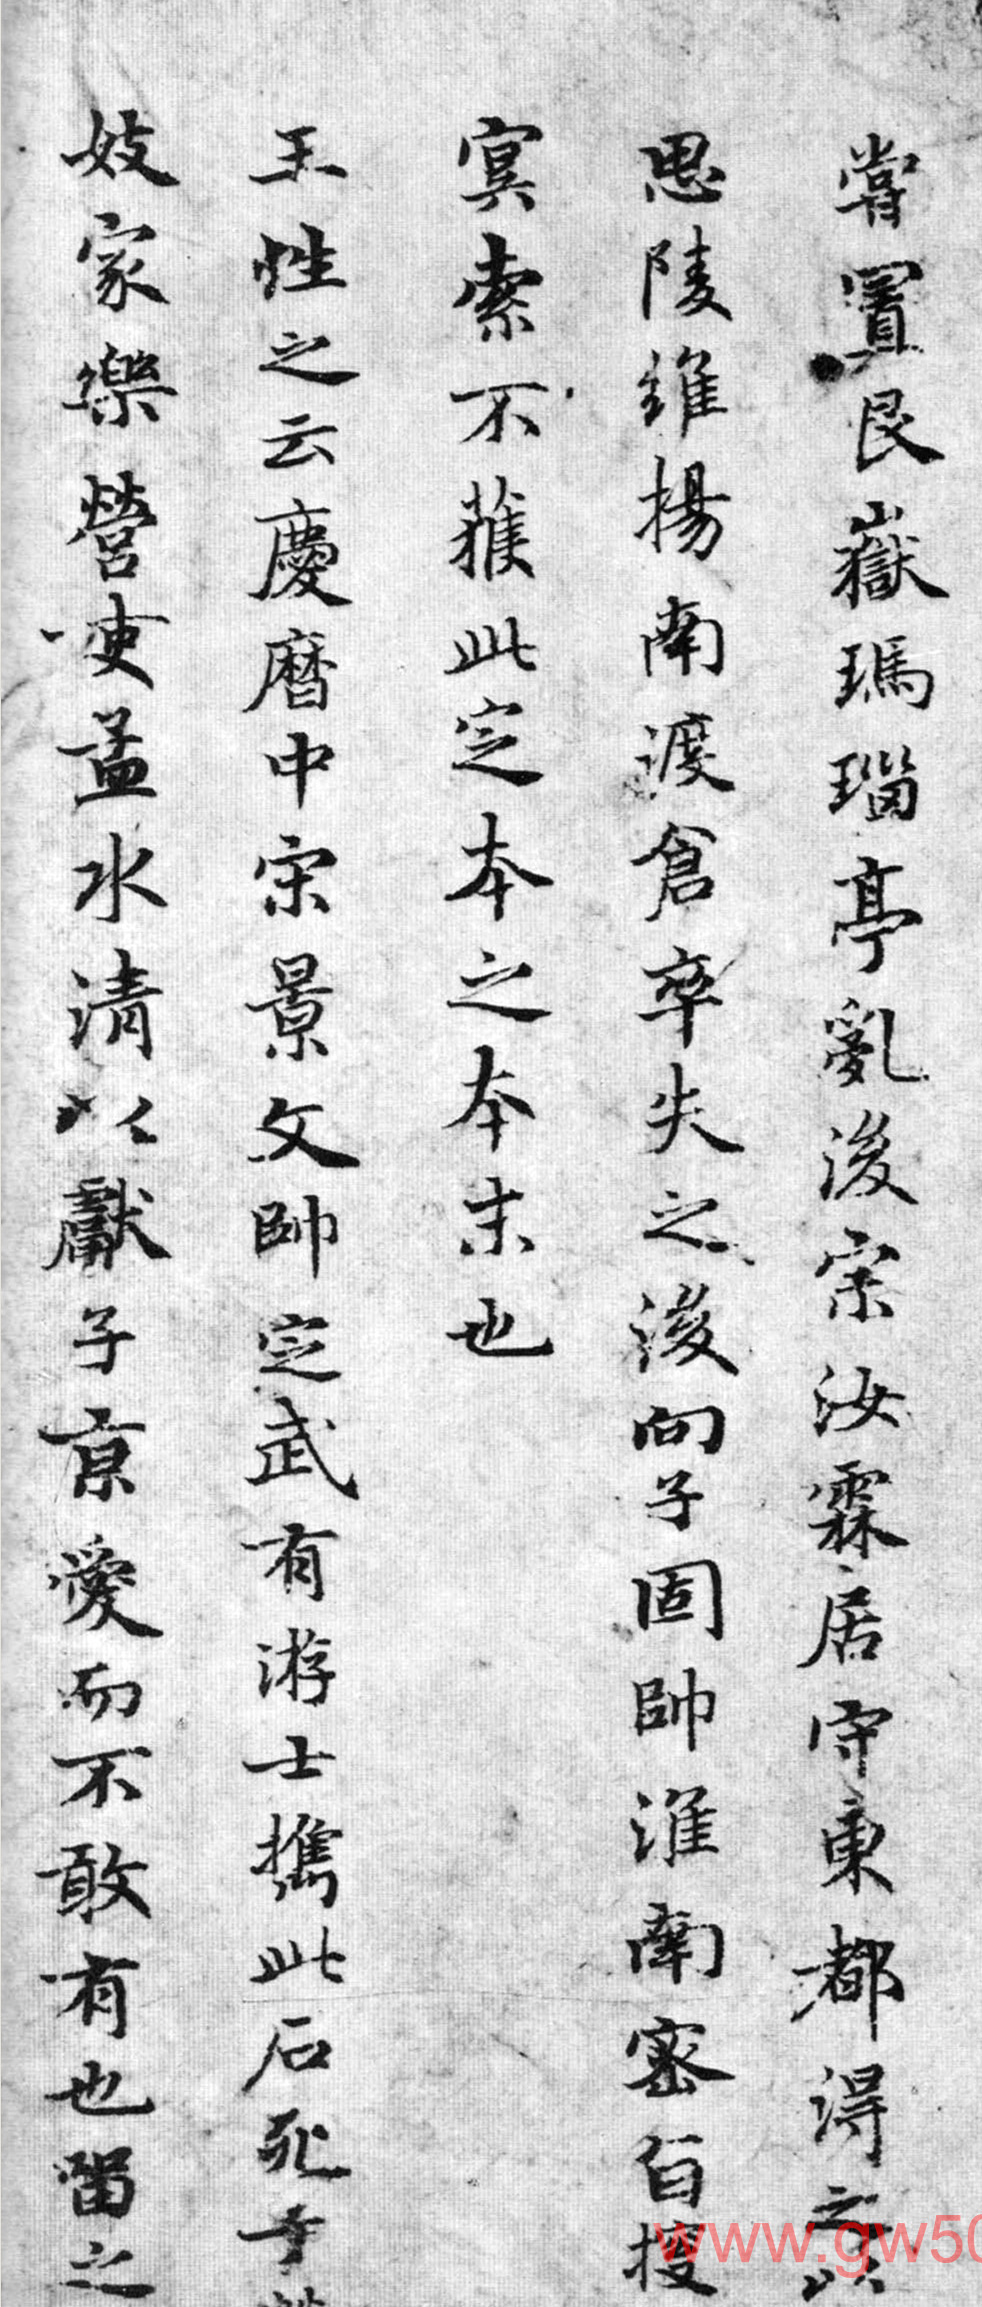 嘗置艮嶽瑪瑙亭亂後宗汝霖居守東都得之以
思陵維揚南渡倉卒失之後向子固帥淮南密旨搜
冥索不獲此定本之本末也
王性之云慶曆中宋景文帥定武有游士攜此石死于
妓家樂營吏孟水清以獻子京愛而不敢有也留之
www.gw50